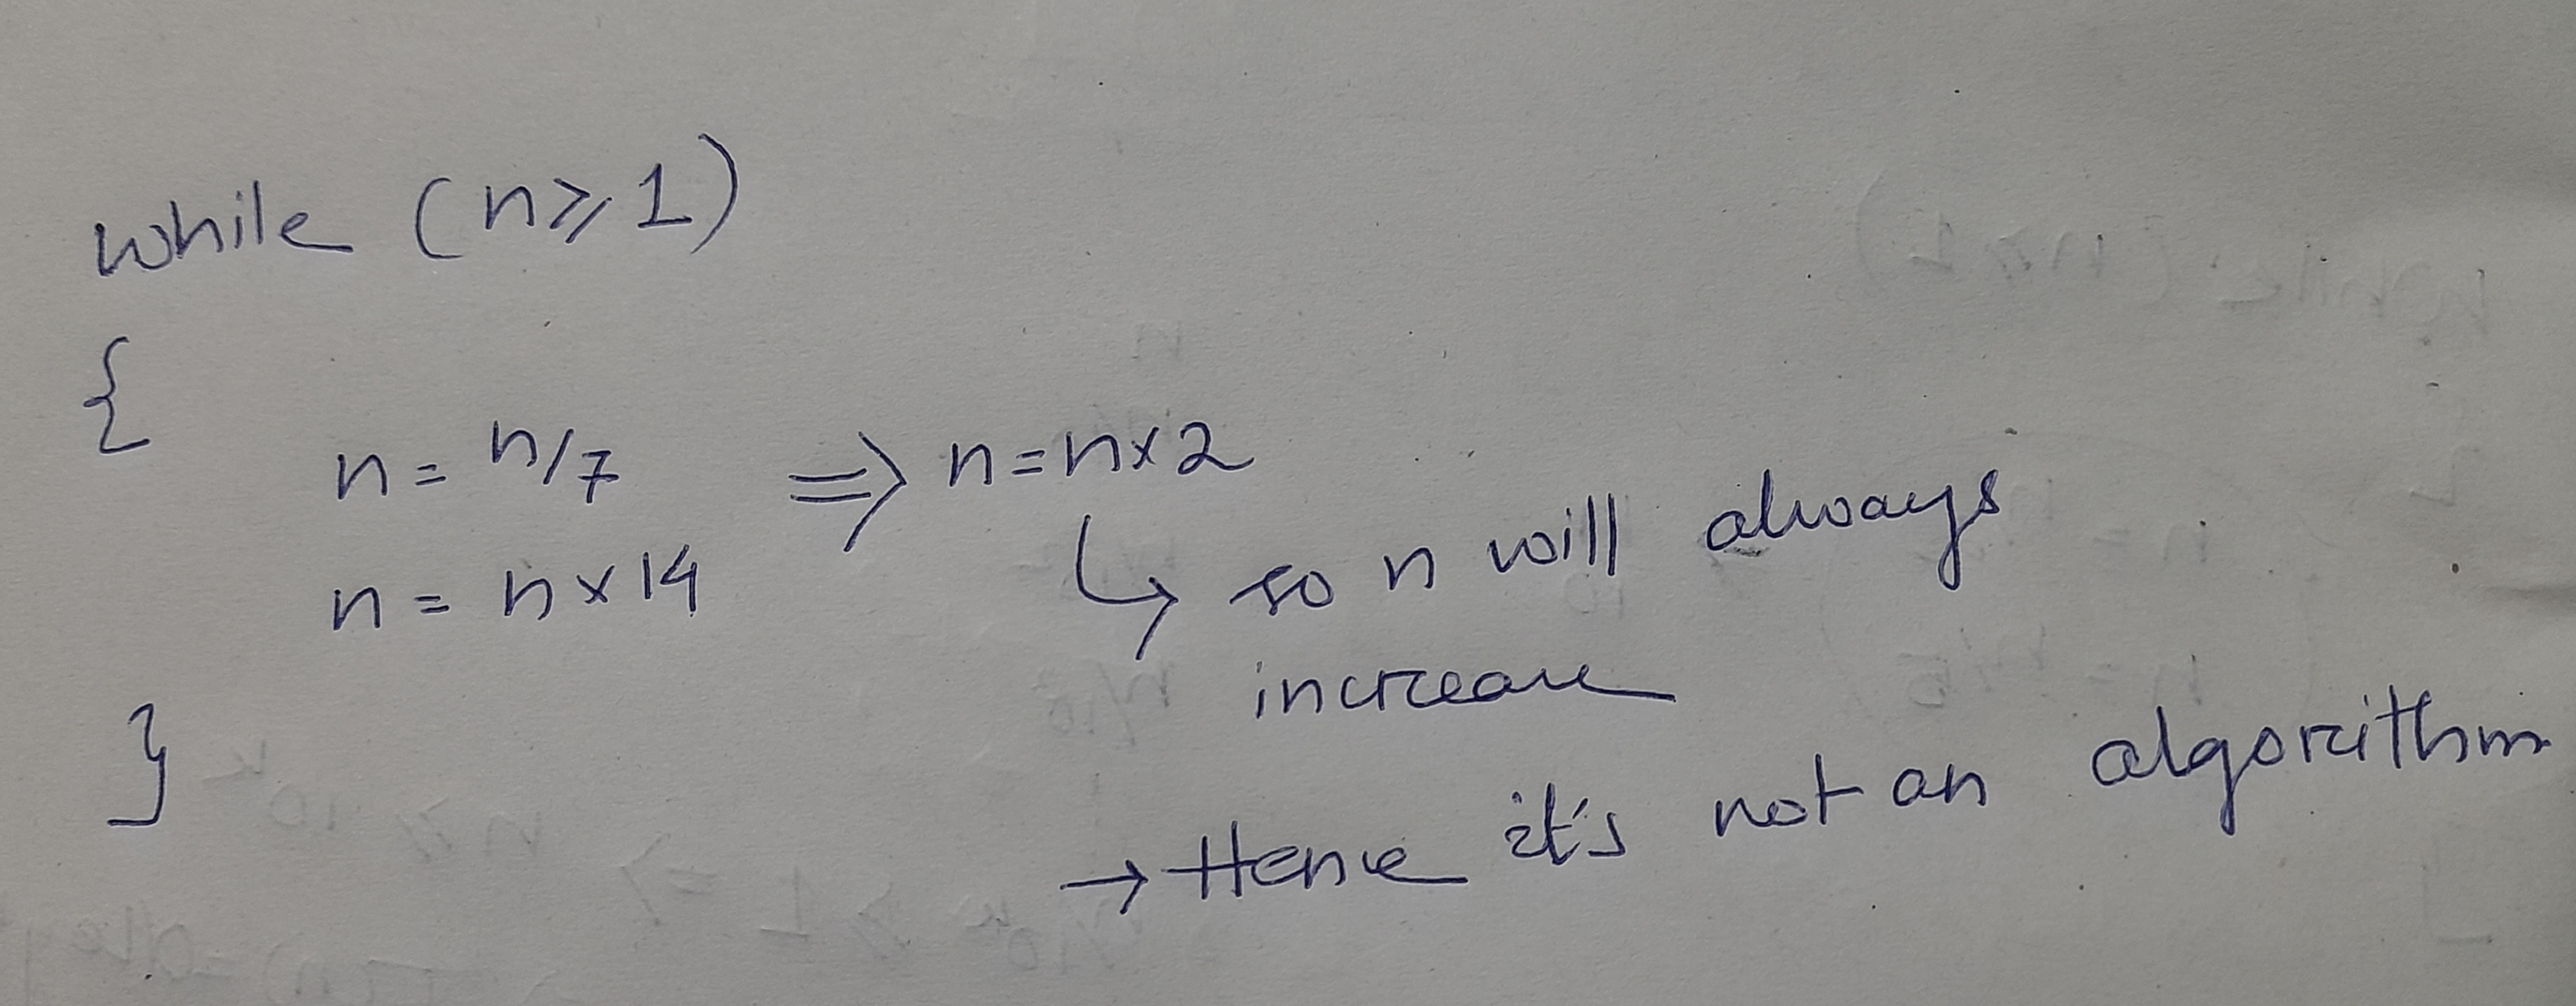 while (n≥1)
{
n = n/7 ⇒ n=n×2
n = n×14 ↳ so n will always
increase
}
→ Hence it's not an algorithm